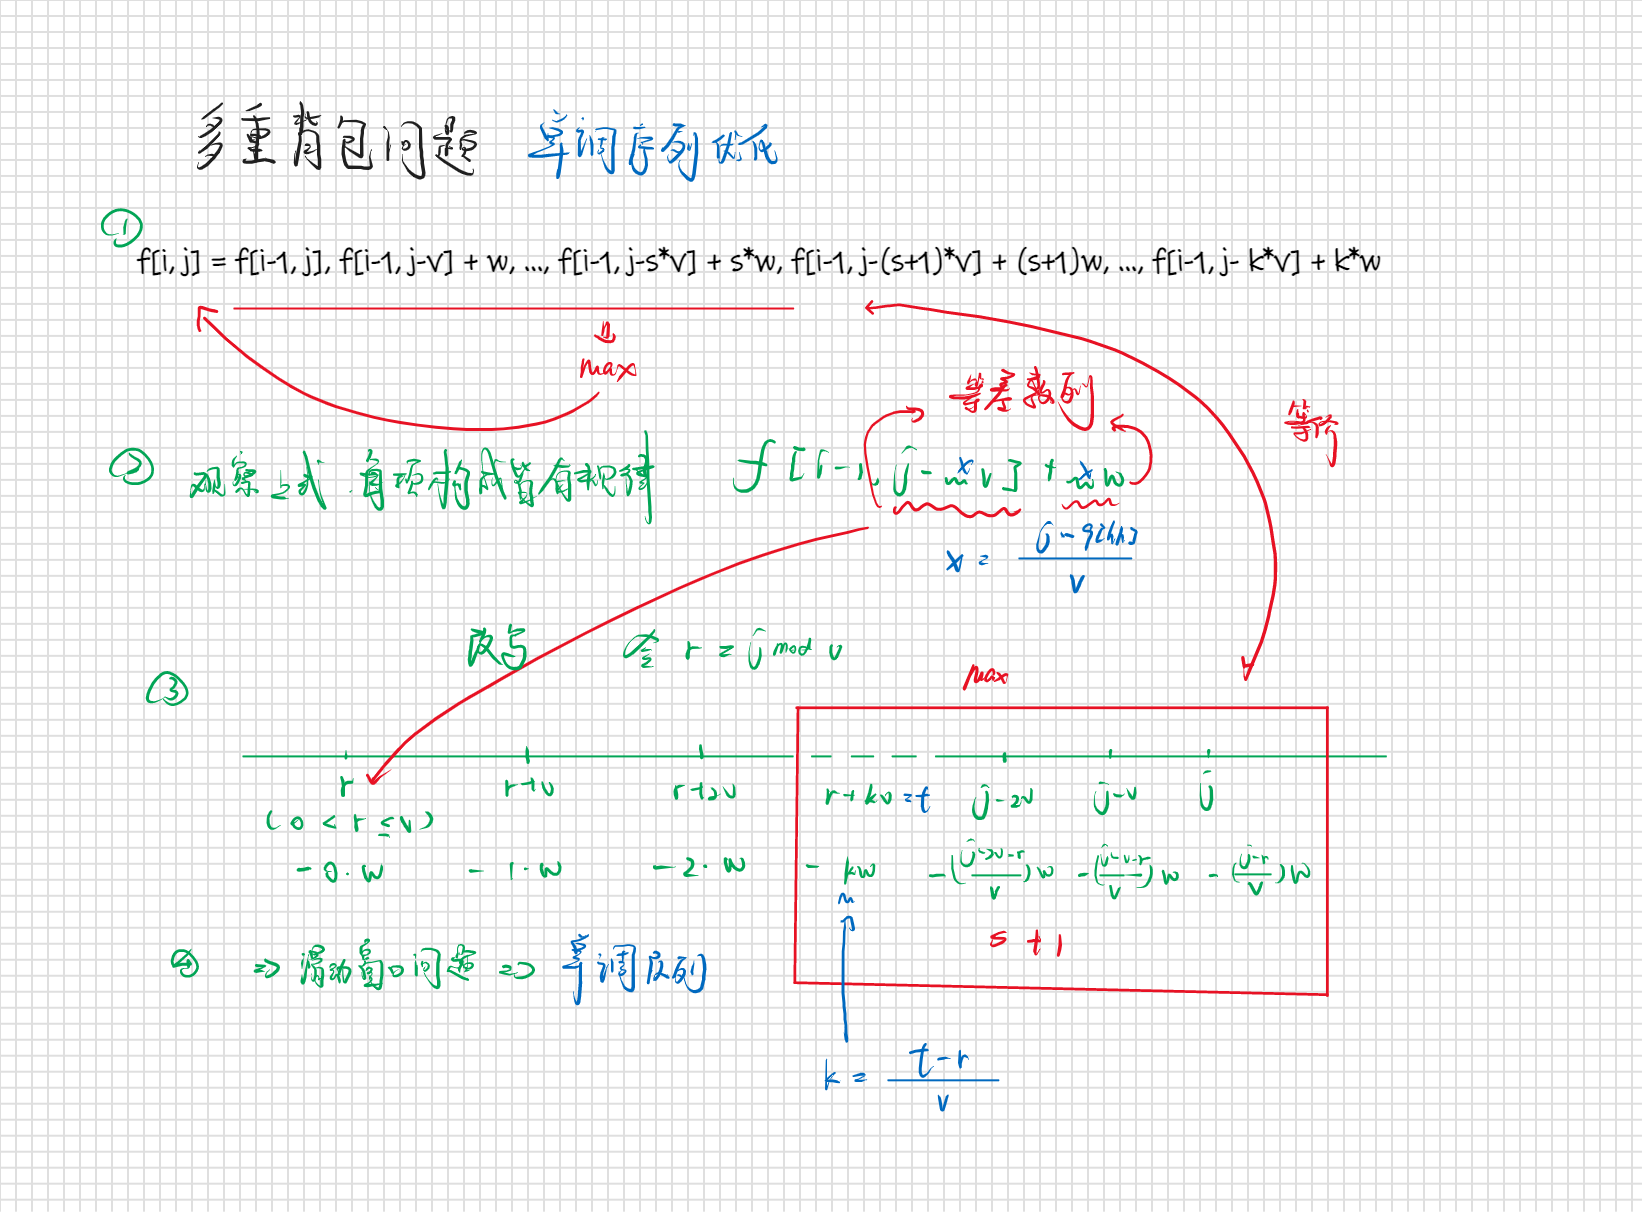 多重背包问题 单调序列优化
①
f[i, j] = f[i-1, j], f[i-1, j-v] + w, ..., f[i-1, j-s*v] + s*w, f[i-1, j-(s+1)*v] + (s+1)w, ..., f[i-1, j- k*v] + k*w
max
等差数列
等价
② 观察上式 每项构成皆有规律 f[i-1, j-xv] + xw
x = (j-q[hh])/v
改写 令 r = j mod v
③
max
r r+v r+2v r+kv =t j-2v j-v j
(0 < r ≤ v)
-0·w -1·w -2·w -kw -((j-2v-r)/v)w -((j-v-r)/v)w -((j-r)/v)w
s+1
④ => 滑动窗口问题 => 单调队列
k = (t-r)/v